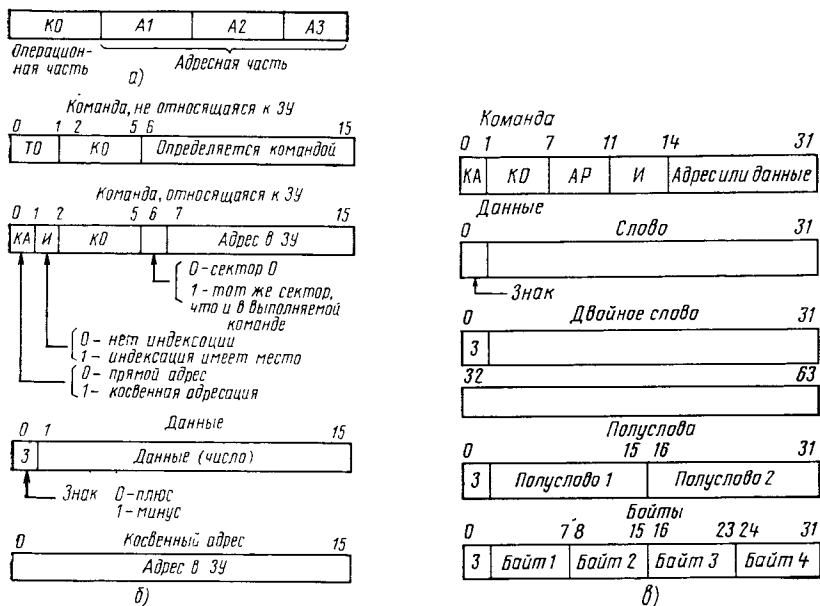 КО А1 А2 А3
Операцион-
ная часть
Адресная часть
а)
Команда, не относящаяся к ЗУ
0 1 2 5 6 15
ТО КО Определяется командой
Команда, относящаяся к ЗУ
0 1 2 5 6 7 15
КА И КО Адрес в ЗУ
0-сектор 0
1-тот же сектор,
что и в выполняемой
команде
0- нет индексации
1- индексация имеет место
0- прямой адрес
1- косвенная адресация
Данные
0 1 15
З Данные (число)
Знак 0-плюс
1-минус
0 Косвенный адрес 15
Адрес в ЗУ
б)
Команда
0 1 7 11 14 31
КА КО АР И Адрес или данные
Данные
0 Слово 31
Знак
0 Двойное слово 31
З
32 63
Полуслова
0 15 16 31
З Полуслово 1 Полуслово 2
Байты
0 7 8 15 16 23 24 31
З Байт 1 Байт 2 Байт 3 Байт 4
в)